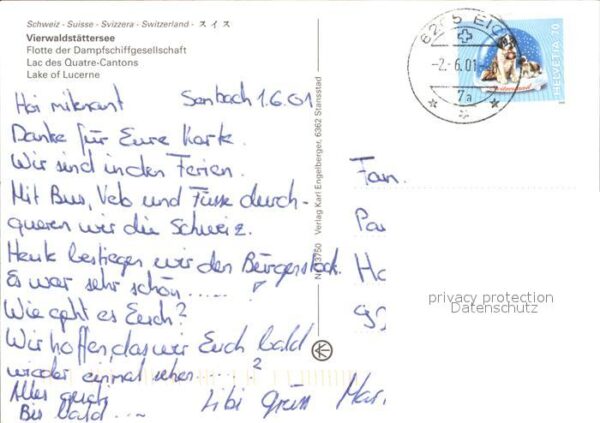 Schweiz · Suisse · Svizzera · Switzerland · スイス
Vierwaldstättersee
Flotte der Dampfschiffgesellschaft
Lac des Quatre-Cantons
Lake of Lucerne
Hoi mitenant Sembach 1.6.01
Danke für Eure Karte.
Wir sind in den Ferien.
Mit Bus, Velo und Füsse durch-
queren wir die Schweiz.
Heute bestiegen wir den Bürgenstock.
Es war sehr schön......!
Wie geht es Euch?
Wir hoffen, das wir Euch bald
wieder einmal sehen.....?
Alles gueti
Bis bald....
Libi Grüss Mar
Nr. 13750 Verlag Karl Engelberger, 6362 Stansstad
6205 EICH
-2.-6.01-
7a
HELVETIA 70
Fam.
Pa
Ha
privacy protection
Datenschutz